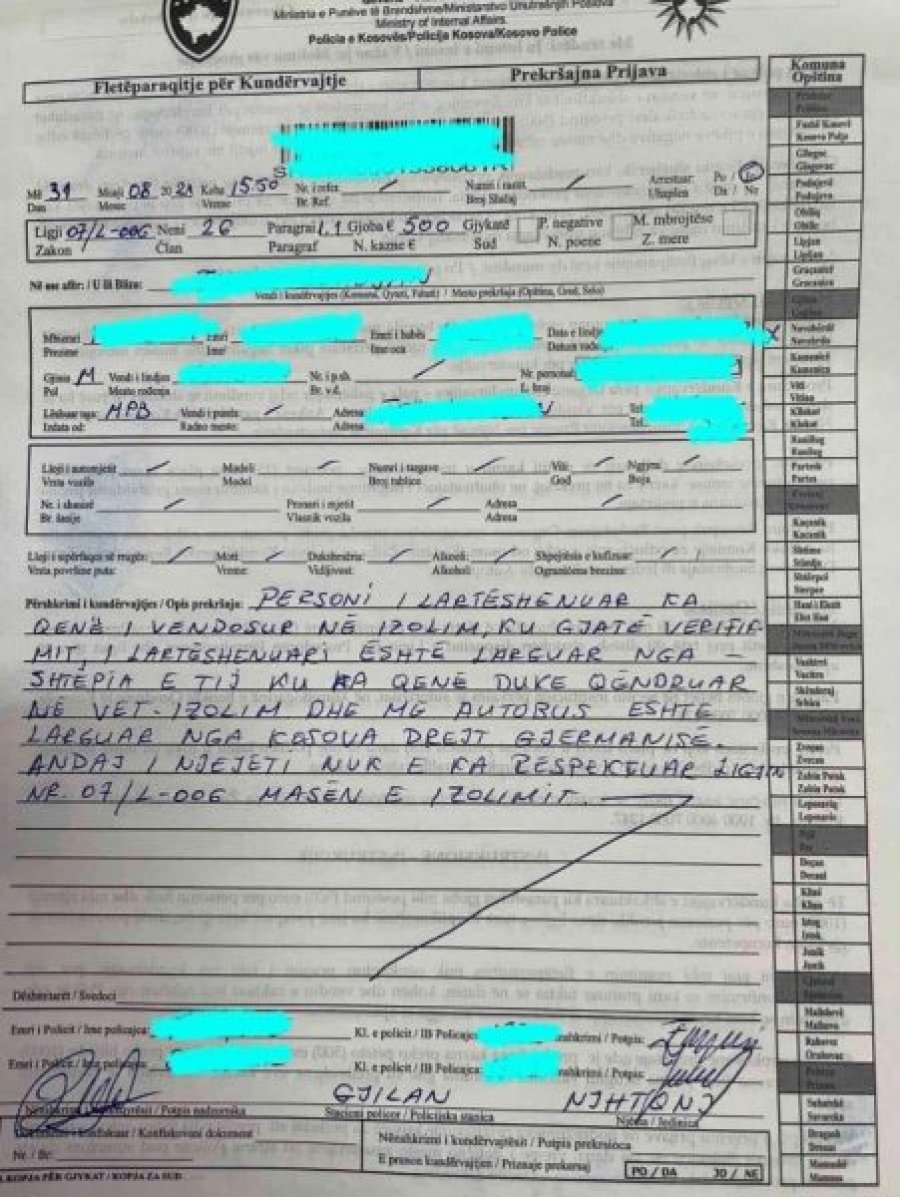 Ministria e Punëve të Brendshme/Ministarstvo Unutrašnjih Poslova
Ministry of Internal Affairs.
Policia e Kosovës/Policija Kosova/Kosovo Police
Fletëparaqitje për Kundërvajtje Prekršajna Prijava
Komuna
Opština
Më 31 Muaji 08 2021 Koha 15:50 Nr. i refer. Numri i rastit Arrestuar Po / Jo
Dan Mesec Vreme Br. Ref. Broj Slučaj Uhapšen Da / Ne
Ligji 07/L-006 Neni 26 Paragraf 1.1 Gjoba € 500 Gjykatë P. negative M. mbrojtëse
Zakon Član Paragraf N. kazne € Sud N. poene Z. mere
Në ose afër: / U ili Blizu:
Vendi i kundërvajtjes (Komuna, Qyteti, Fshati) / Mesto prekršaja (Opština, Grad, Selo)
Mbiemri Emri Emri i babës Data e lindjes
Prezime Ime Ime oca Datum
Gjinia M Vendi i lindjes Nr. i p.sh. Nr. personal
Pol Mesto rođenja Br. v.d. L. broj
Lëshuar nga: MPB Vendi i punës: Adresa Tel.
Izdata od: Radno mesto: Adresa Tel.
Lloji i automjetit Modeli Numri i targave Viti Ngjyra
Vrsta vozila Model Broj tablice God Boja
Nr. i shasisë Pronari i mjetit Adresa
Br. šasije Vlasnik vozila Adresa
Lloji i sipërfaqes së rrugës: Moti Dukshmëria: Alkooli: Shpejtësia e kufizuar:
Vrsta površine puta: Vreme: Vidljivost: Alkohol: Ograničena brzina:
Përshkrimi i kundërvajtjes / Opis prekršaja: PERSONI I LARTËSHENUAR KA
QENË I VENDOSUR NË IZOLIM, KU GJATË VERIFIK-
MIT, I LARTËSHENUARI ËSHTË LARGUAR NGA
SHTËPIA E TIJ KU KA QENË DUKE QËNDRUAR
NË VET-IZOLIM DHE ME AUTOBUS ËSHTË
LARGUAR NGA KOSOVA DREJT GJERMANISË.
ANDAJ I NJEJETI NUK E KA RESPEKTUAR LIGJIN
NR. 07/L-006 MASËN E IZOLIMIT
Dëshmitarët / Svedoci
Emri i Policit / Ime policajca: Kl. e policit / IB Policajca: Nënshkrimi / Potpis:
Emri i Policit / Ime policajca: Kl. e policit / IB Policajca: Nënshkrimi / Potpis:
GJILAN
Nënshkrimi i mbikëqyrësit / Potpis nadzornika Stacioni policor / Policijska stanica Njësia / Jedinica
Dokumenti i konfiskuar / Konfiskovani dokument
Nr. / Br:
Nënshkrimi i kundërvajtësit / Potpis prekrsioca
E pranon kundërvajtjen / Priznaje prekersaj PO / DA JO / NE
KOPJA PËR GJYKAT / KOPJA ZA SUD
Fushë Kosovë
Kosovo Polje
Gllogoc
Glogovac
Podujevë
Podujevo
Obiliq
Obilić
Lipjan
Lipljan
Graçanicë
Gracanica
Novobërdë
Novobrdo
Kamenicë
Kamenica
Viti
Vitina
Kllokot
Klokot
Ranillug
Ranilug
Partesh
Parteš
Kaçanik
Kacanik
Shtime
Štimlje
Shtërpcë
Štrpce
Hani i Elezit
Elez Han
Vushtrri
Vucitrn
Skënderaj
Srbica
Zveçan
Zvecan
Zubin Potok
Zubin Potok
Leposaviq
Leposavic
Pejë
Pec
Deçan
Decani
Klinë
Klina
Istog
Istok
Junik
Junik
Malishevë
Mališevo
Rahovec
Orahovac
Prizren
Prizren
Suharekë
Suvareka
Dragash
Dragaš
Mamushë
Mamusa